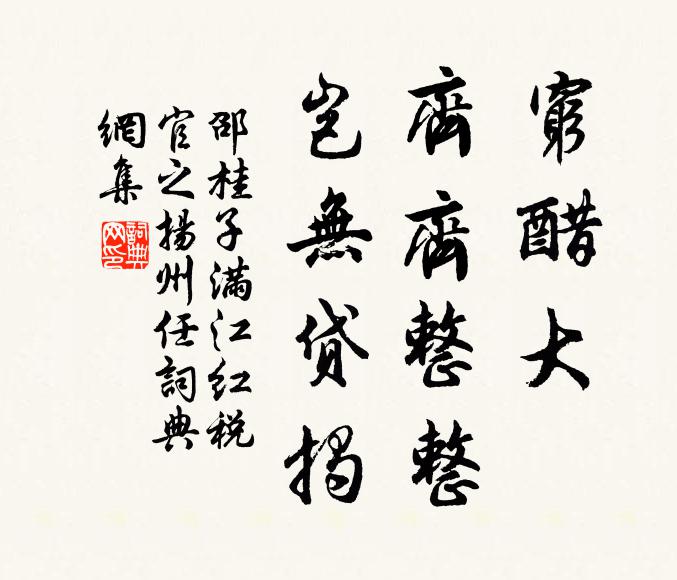 窮醋大
齊齊整整
豈無貸揭
邵桂子滿江红税
官之揚州任詞典
網集
詞典网印